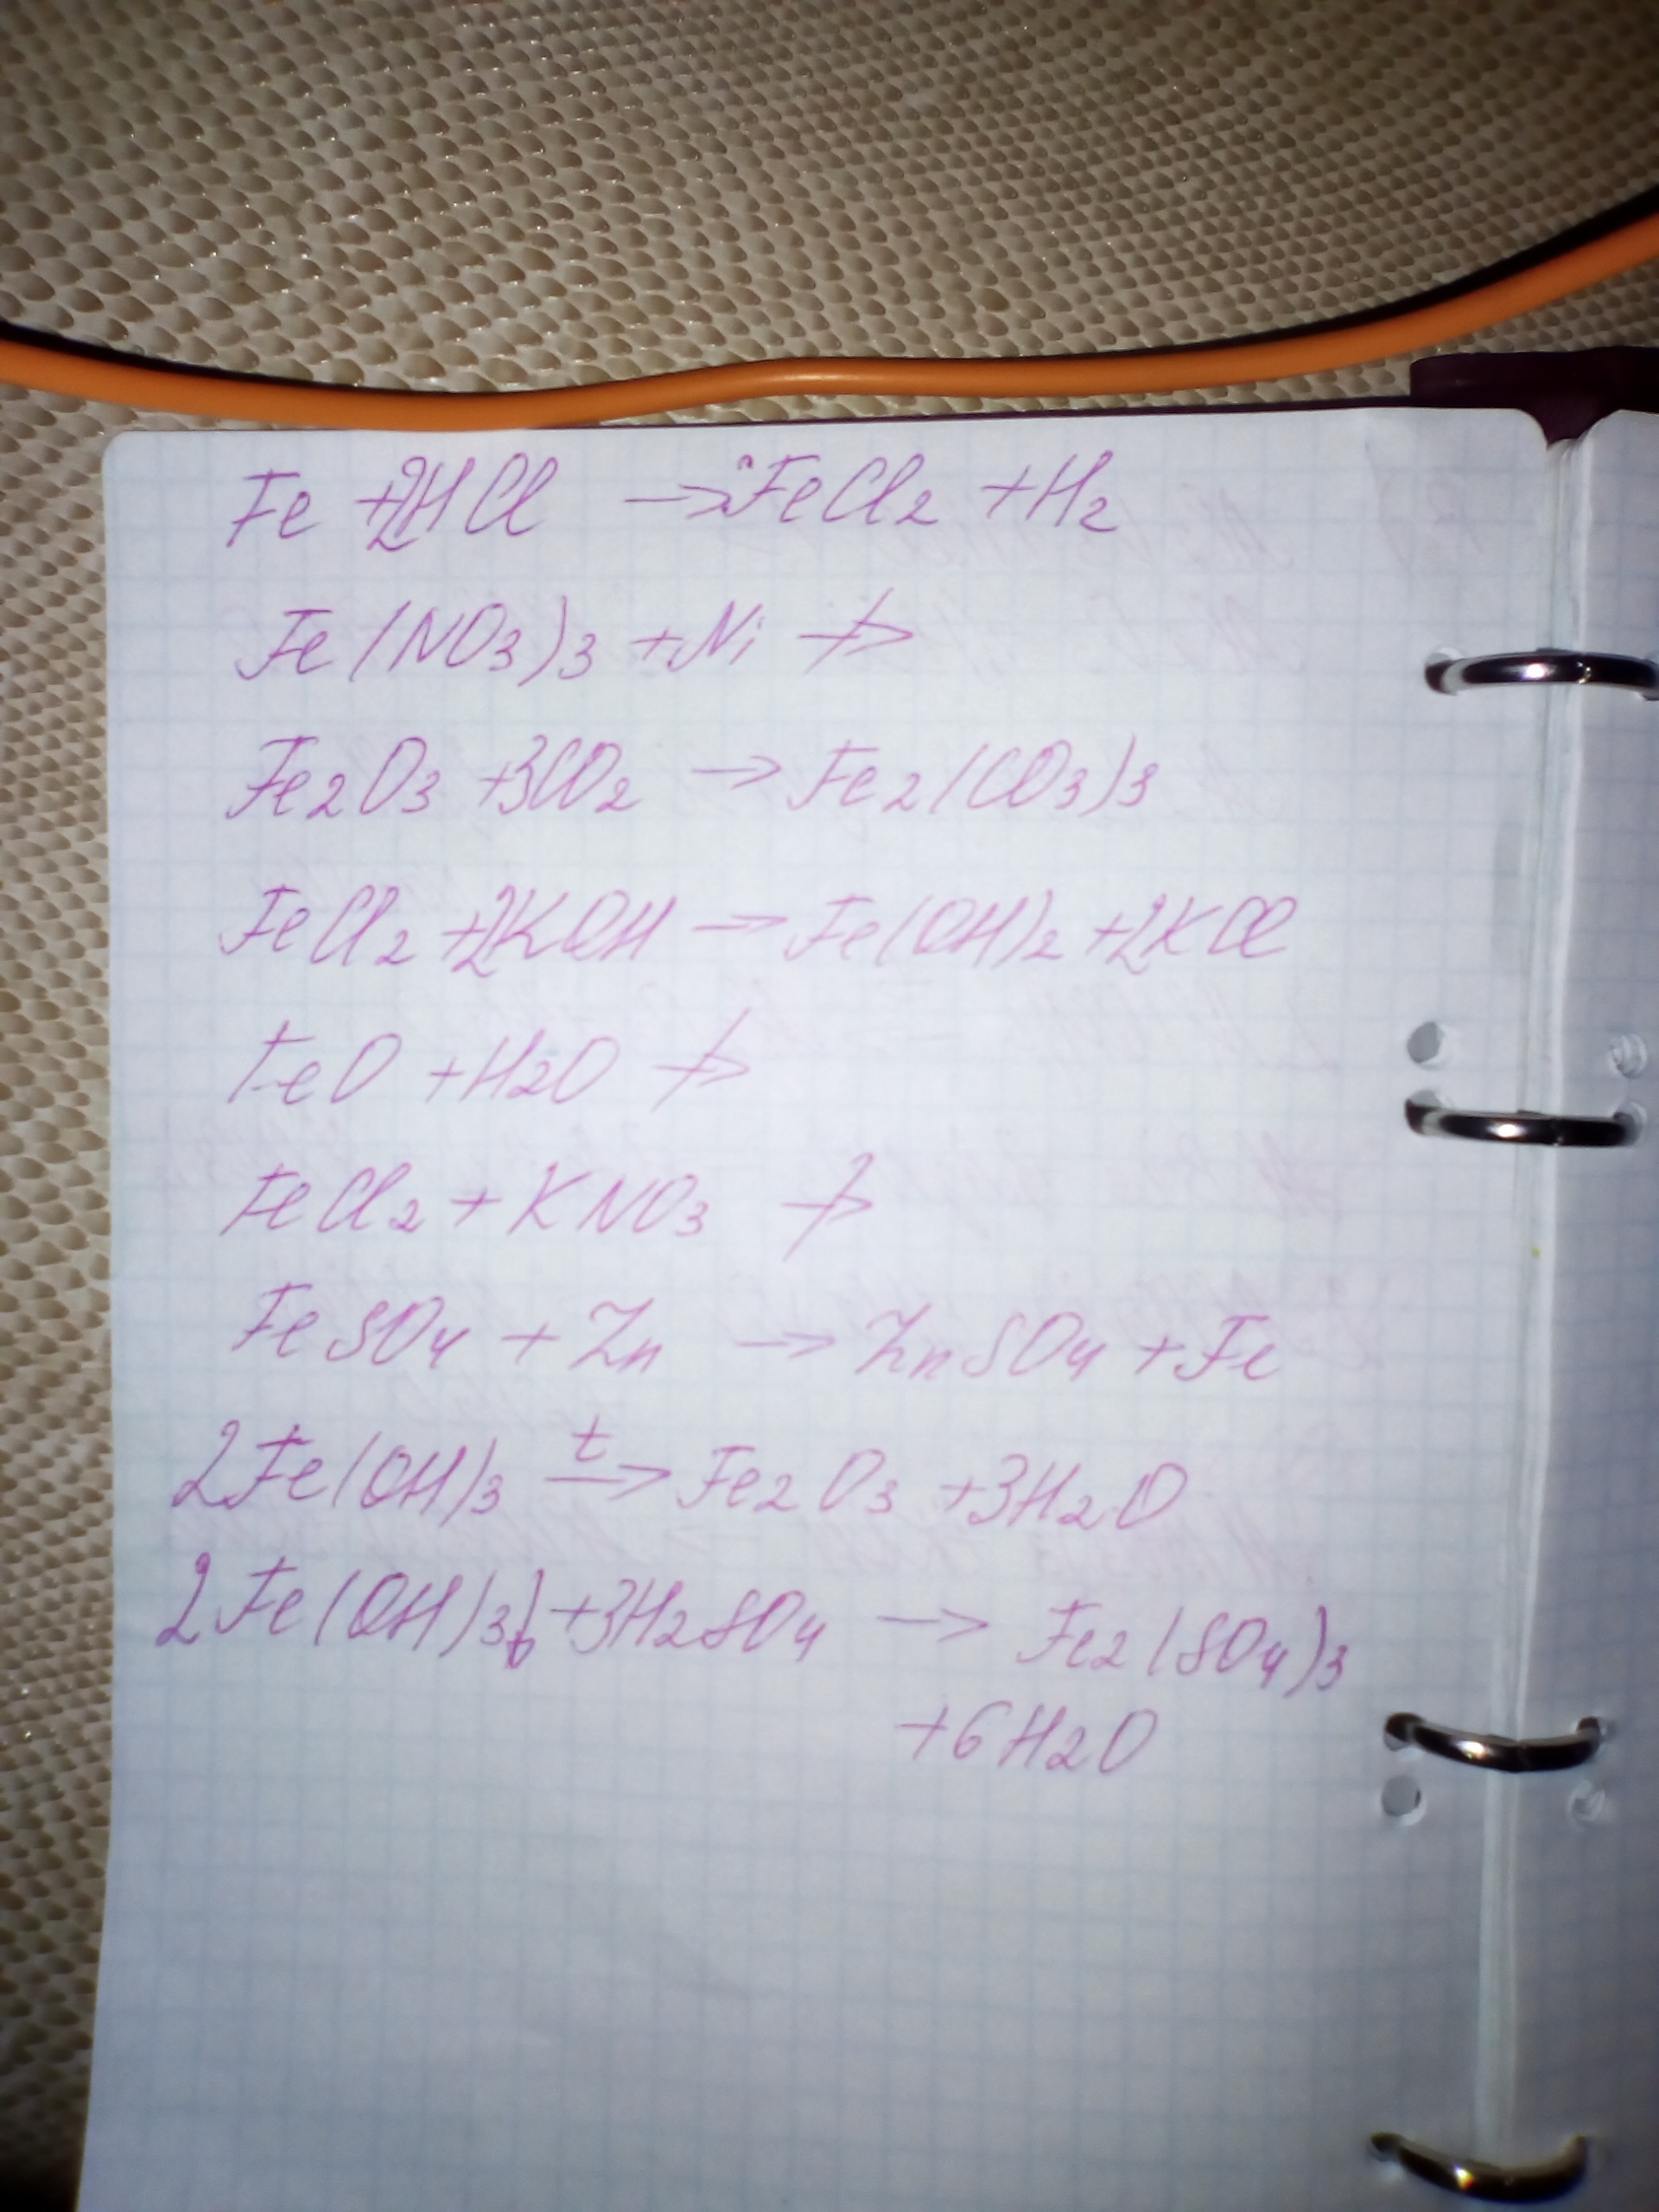 Fe + 2HCl → FeCl2 + H2
Fe(NO3)3 + Ni ↛
Fe2O3 + 3CO2 → Fe2(CO3)3
FeCl2 + 2KOH → Fe(OH)2 + 2KCl
FeO + H2O ↛
FeCl2 + KNO3 ↛
FeSO4 + Zn → ZnSO4 + Fe
2Fe(OH)3 t→ Fe2O3 + 3H2O
2Fe(OH)3 + 3H2SO4 → Fe2(SO4)3
+ 6H2O